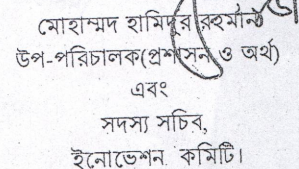 মোহাম্মদ হামিদুর রহমান
উপ-পরিচালক(প্রশাসন ও অর্থ)
এবং
সদস্য সচিব,
ইনোভেশন কমিটি।